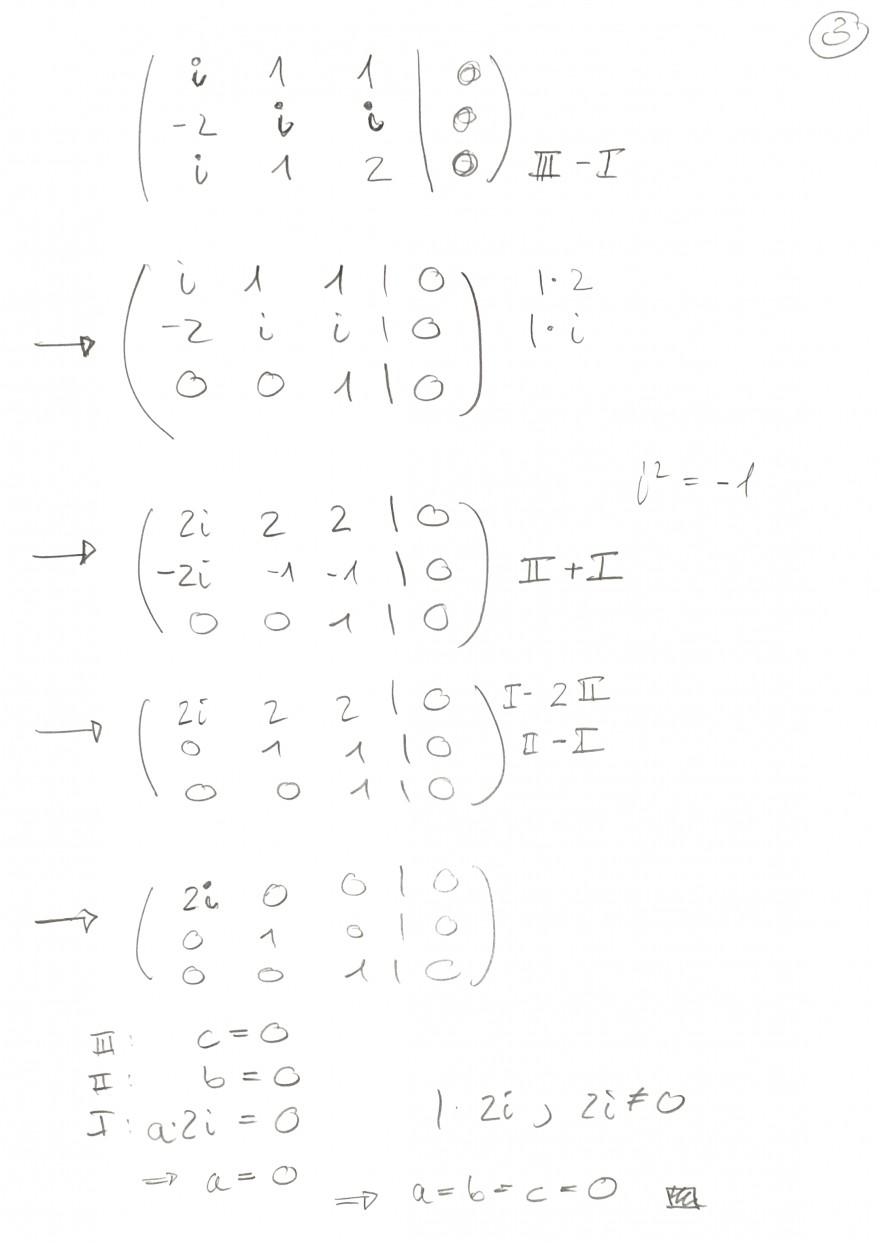 3
i 1 1 | 0
-2 i i | 0
i 1 2 | 0 III - I
→ i 1 1 | 0 | · 2
-2 i i | 0 | · i
0 0 1 | 0
i² = -1
→ 2i 2 2 | 0
-2i -1 -1 | 0 II + I
0 0 1 | 0
→ 2i 2 2 | 0 I - 2 II
0 1 1 | 0 II - I
0 0 1 | 0
→ 2i 0 0 | 0
0 1 0 | 0
0 0 1 | 0
III: c = 0
II: b = 0
I: a·2i = 0 | · 2i, 2i ≠ 0
⇒ a = 0
⇒ a = b = c = 0